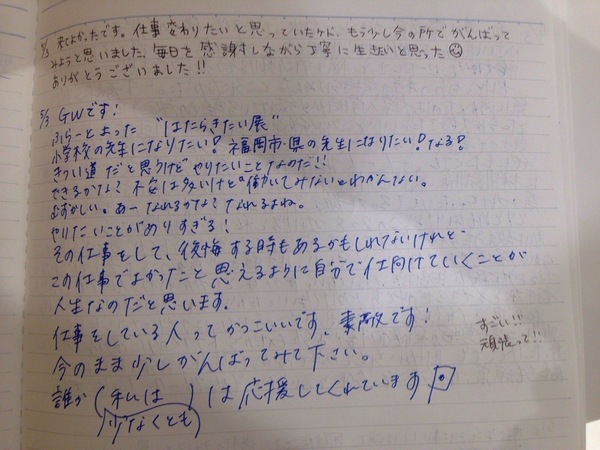 5/3 来てよかったです。仕事変わりたいと思っていたケド、もう少し今の所でがんばって
みようと思いました。毎日を感謝しながら丁寧に生きたいと思った
ありがとうございました!!
5/3 GWです!
ふらーとよった "はたらきたい展"
小学校の先生になりたい! 福岡市・県の先生になりたい! なる!
きつい道だと思うけど やりたいことなのだ!!
できるかな? 不安は多いけど働いてみないとわかんない。
むずかしい。あー なれるかな? なれるよね。
やりたいことがありすぎる!
その仕事をして、後悔する時もあるかもしれないけれど
この仕事でよかったこと思えるように自分で仕向けていくことが
人生なのだと思います。
仕事をしている人ってかっこいいです。素敵です!
すごい!!
頑張って!!
今のまま少しがんばってみて下さい。
誰か(私は)は応援してくれています
少なくとも